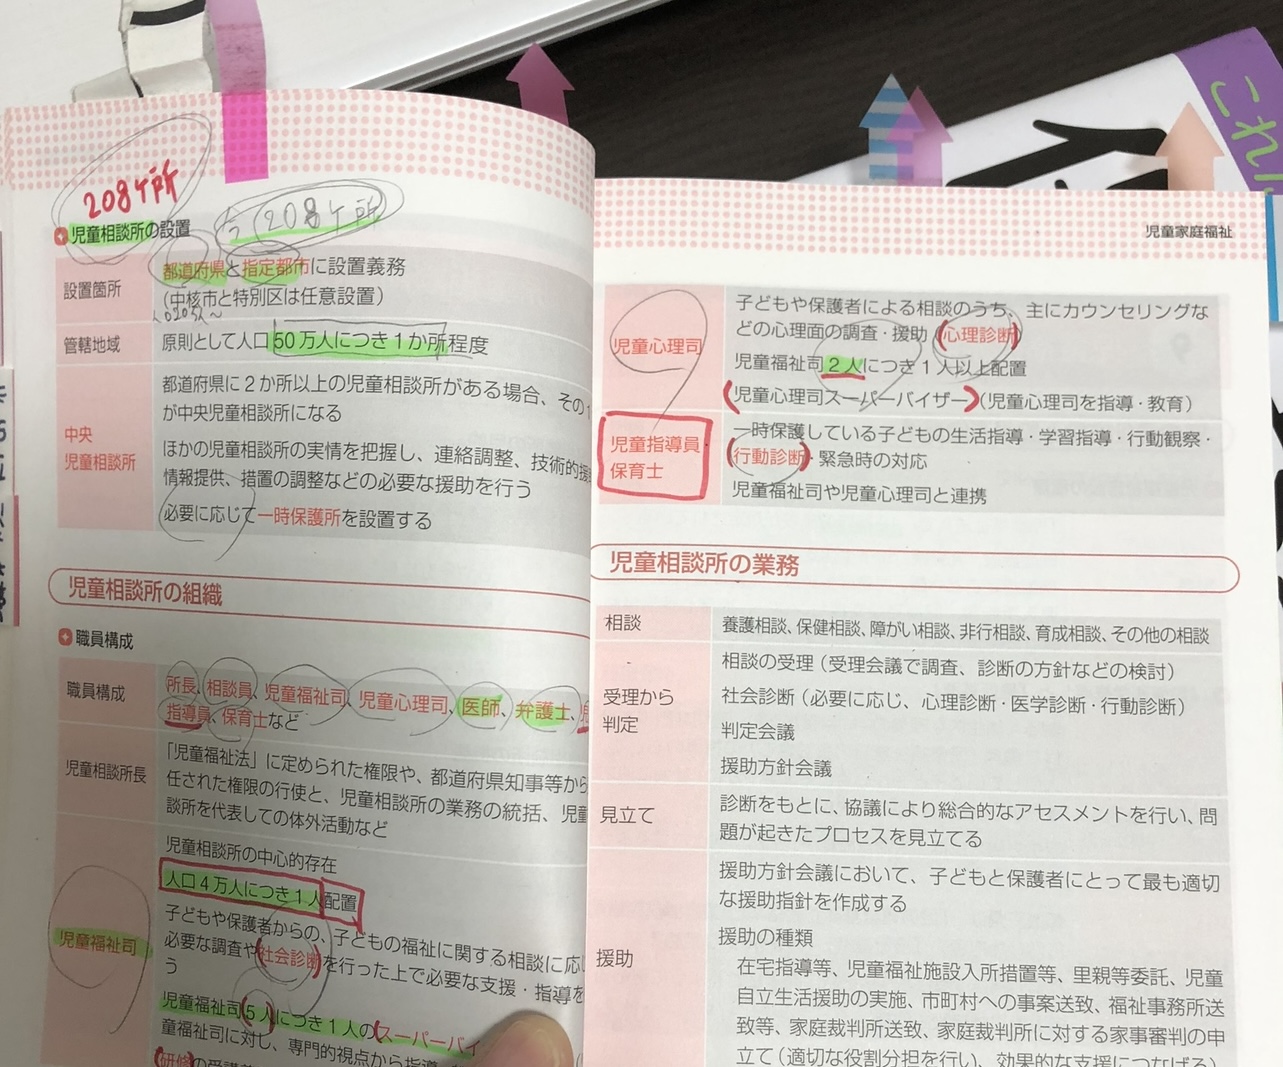 208ケ所
今208ケ所
児童相談所の設置
設置箇所
都道府県と指定都市に設置義務
(中核市と特別区は任意設置)
管轄地域
原則として人口50万人につき1か所程度
中央
児童相談所
都道府県に2か所以上の児童相談所がある場合、その1
が中央児童相談所になる
ほかの児童相談所の実情を把握し、連絡調整、技術的援
情報提供、措置の調整などの必要な援助を行う
必要に応じて一時保護所を設置する
児童相談所の組織
職員構成
職員構成
所長、相談員、児童福祉司、児童心理司、医師、弁護士、児
指導員、保育士など
児童相談所長
「児童福祉法」に定められた権限や、都道府県知事等から
任された権限の行使と、児童相談所の業務の統括、児童
談所を代表しての体外活動など
児童福祉司
児童相談所の中心的存在
人口4万人につき1人配置
子どもや保護者からの、子どもの福祉に関する相談に応じ
必要な調査や社会診断を行った上で必要な支援・指導を
う
児童福祉司5人につき1人のスーパーバイ
童福祉司に対し、専門的視点から指導
研修の受講
児童家庭福祉
児童心理司
子どもや保護者による相談のうち、主にカウンセリングな
どの心理面の調査・援助(心理診断)
児童福祉司2人につき1人以上配置
児童心理司スーパーバイザー(児童心理司を指導・教育)
児童指導員
保育士
一時保護している子どもの生活指導・学習指導・行動観察・
行動診断・緊急時の対応
児童福祉司や児童心理司と連携
児童相談所の業務
相談
養護相談、保健相談、障がい相談、非行相談、育成相談、その他の相談
受理から
判定
相談の受理(受理会議で調査、診断の方針などの検討)
社会診断(必要に応じ、心理診断・医学診断・行動診断)
判定会議
援助方針会議
見立て
診断をもとに、協議により総合的なアセスメントを行い、問
題が起きたプロセスを見立てる
援助
援助方針会議において、子どもと保護者にとって最も適切
な援助指針を作成する
援助の種類
在宅指導等、児童福祉施設入所措置等、里親等委託、児童
自立生活援助の実施、市町村への事案送致、福祉事務所送
致等、家庭裁判所送致、家庭裁判所に対する家事審判の申
立て(適切な役割分担を行い、効果的な支援につなげる)
これ